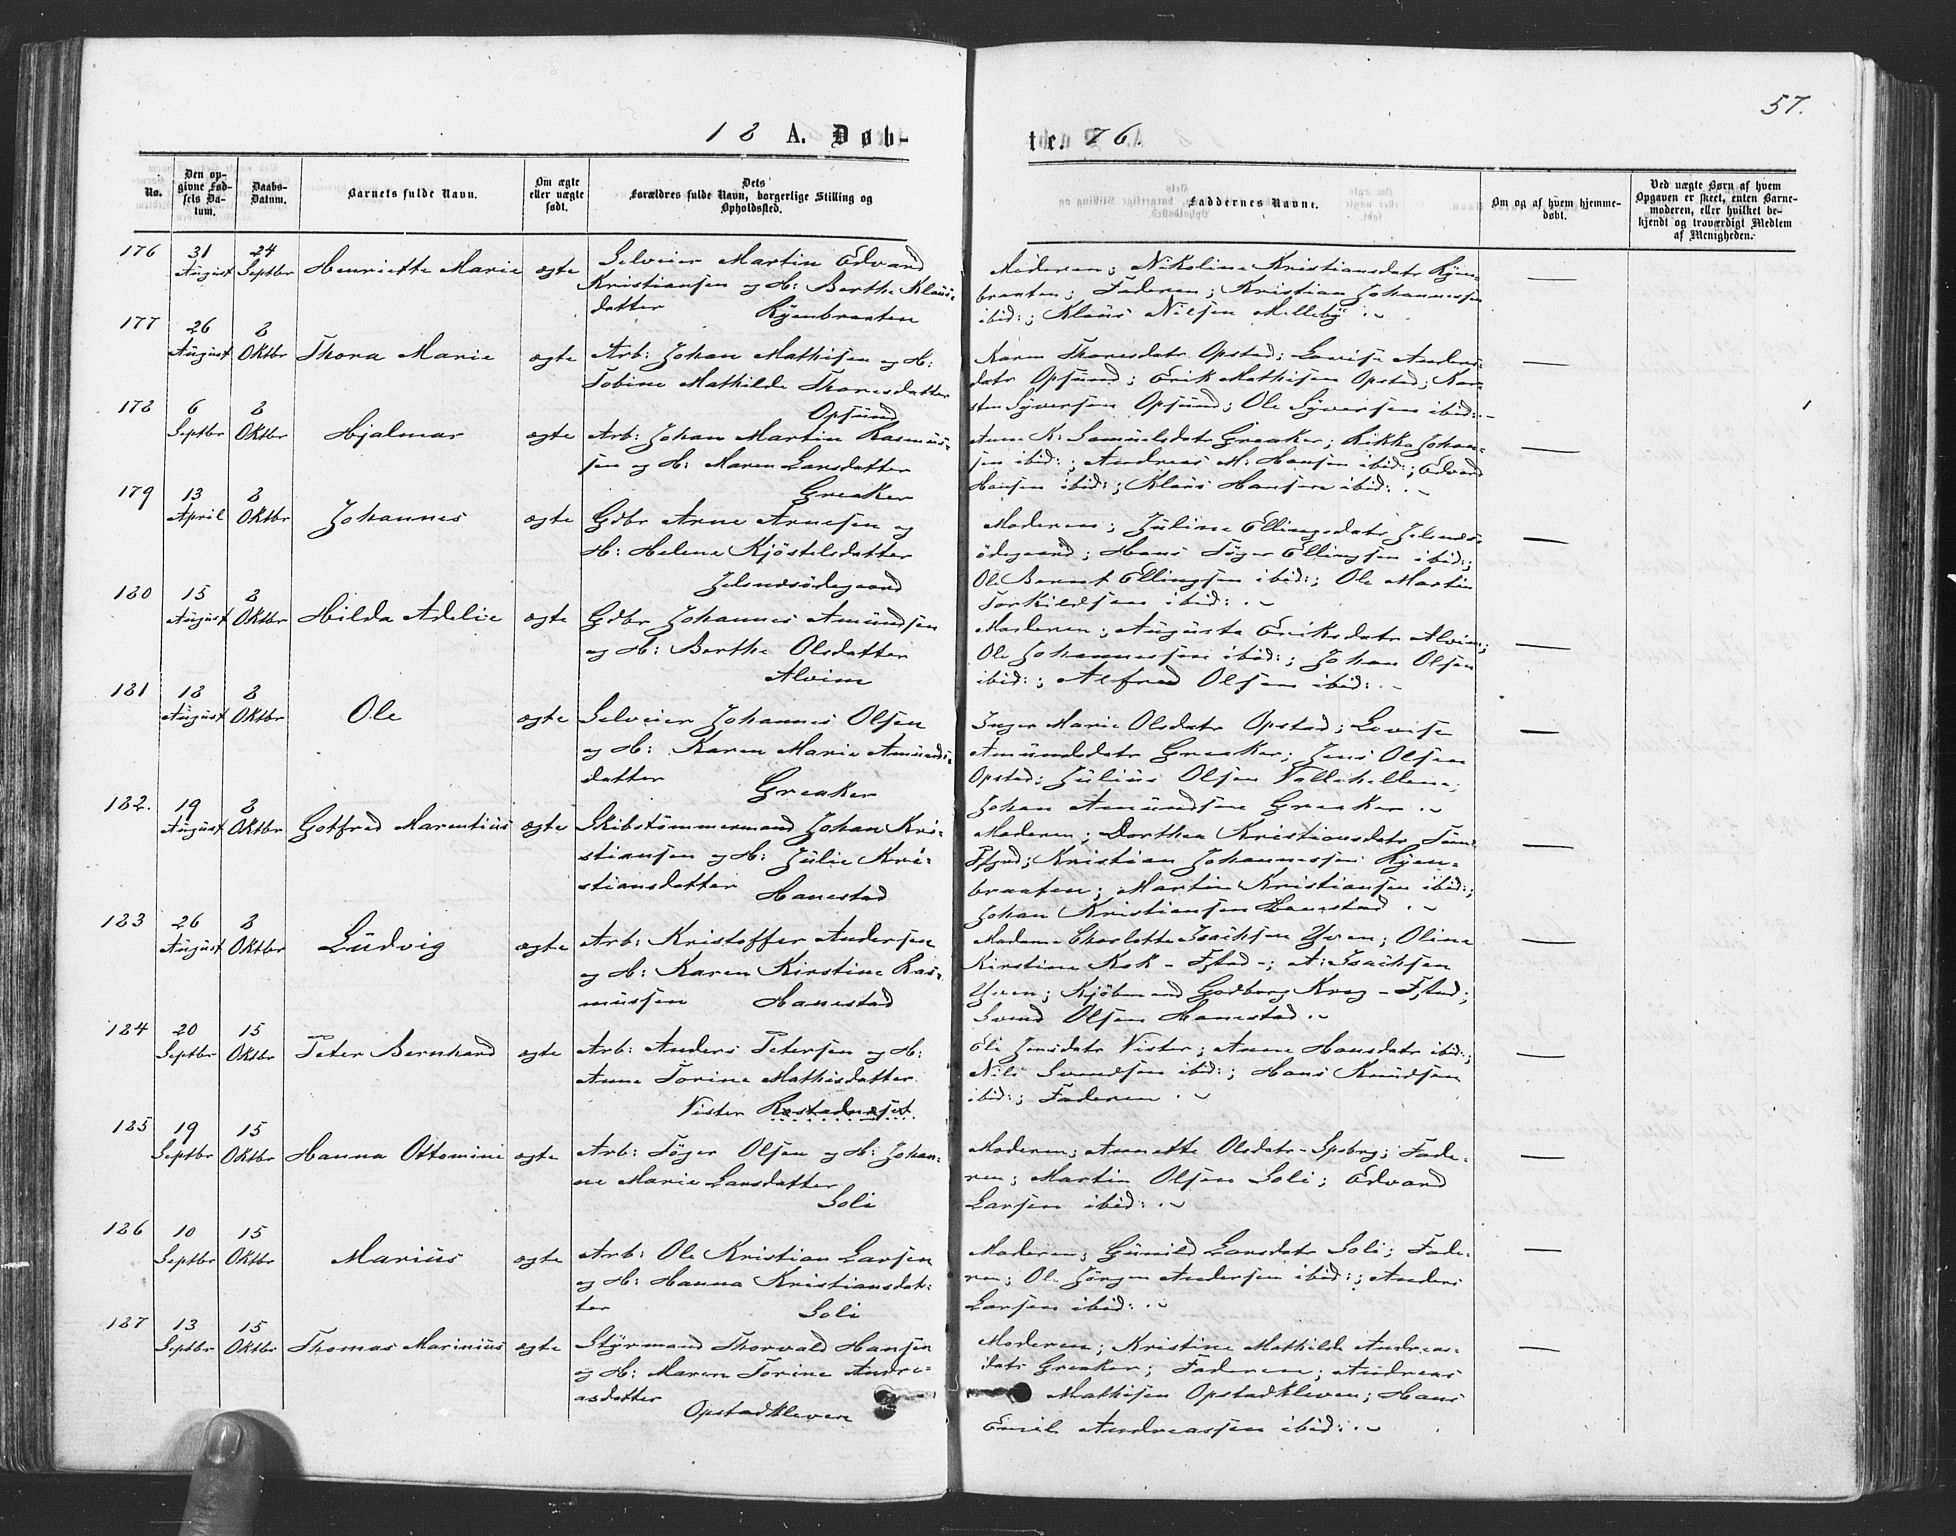 57.
18 A. Døb-
te. 76.
No.
Den op-
givne Fød-
sels Da-
tum.
Daabs-
Datum.
Barnets fulde Navn.
Om ægte
eller uægte
født.
Dets
Forældres fulde Navn, borgerlige Stilling og
Opholdssted.
Faddernes Navne.
Om og af hvem hjemme-
døbt.
Ved uægte Børn af hvem
Opgaven er skeet, enten Barne-
moderen, eller hvilket be-
kjendt og troværdigt Medlem
af Menigheden.
176 31 August 24 Septbr Henriette Marie ægte
Selveier Martin Edvard
Kristiansen og H: Berthe Klaus-
datter Ryenbraaten
Moderen; Nikoline Kristiansdatr Ryen-
braaten; Faderen; Kristian Johannessen
ibid:; Klaus Nilsen Melleby
177 26 August 8 Oktbr Thora Marie ægte
Arb: Johan Mathisen og H:
Tobine Mathilde Thoresdatter
Opsund
Karen Thoresdatr Opstad; Lovise Anders-
datr Opsund; Erik Mathisen Opstad; Kar-
sten Syversen Opsund; Ole Syversen ibid:
178 6 Septbr 8 Oktbr Hjalmar ægte
Arb: Johan Martin Rasmus-
sen og H: Maren Larsdatter
Greaker
Anne K: Samuelsdatr Greaker; Rikka Johan-
sen ibid:; Andreas M: Hansen ibid:; Edvard
Hansen ibid:; Klaus Hansen ibid:
179 13 April 8 Oktbr Johannes ægte
Gdbr Arne Arnesen og
H: Helene Kjöstelsdatter
Jelsnesödegaard
Moderen; Juline Ellingsdatr Jelsnes-
ödegaard; Hans Töger Ellingsen ibid:;
Ole Bernt Ellingsen ibid:; Ole Martin
Torkildsen ibid:
180 15 August 8 Oktbr Hilda Adelie ægte
Gdbr Johannes Amundsen
og H: Berthe Olsdatter
Alvim
Moderen; Augusta Eriksdatr Alvim;
Ole Johannessen ibid:; Johan Olsen
ibid:; Alfred Olsen ibid:
181 18 August 8 Oktbr Ole ægte
Selveier Johannes Olsen
og H: Karen Marie Amunds-
datter Greaker
Inger Marie Olsdatr Opstad; Lovise
Amundsdatr Greaker; Jens Olsen
Opstad; Julius Olsen Vallehellene;
Johan Amundsen Greaker
182. 19 August 8 Oktbr Gotfred Marentius ægte
Skibstömmermand Johan Kri-
stiansen og H: Julie Kri-
stiansdatter Hanestad
Moderen; Dorthea Kristiansdatr Tune
; Kristian Johannessen Ryen-
braaten; Martin Kristiansen ibid:;
Johan Kristiansen Hanestad
183 26 August 8 Oktbr Ludvig ægte
Arb: Kristoffer Andersen
og H: Karen Kirstine Ras-
mussen Hanestad
Madame Charlotte Isachsen Yven; Oline
Kirstine Kok - Fstad -; A: Isachsen
Yven; Kjöbmand Godborg Krog - Fstad;
Svend Olsen Hanestad
184 20 Septbr 15 Oktbr Peter Bernhard ægte
Arb: Anders Petersen og H:
Anne Torine Mathisdatter
Vister Rostadneset
Eli Jensdatr Vister; Anne Hansdatr ibid:;
Nils Svendsen ibid:; Hans Knudsen
ibid:; Faderen
185 19 Septbr 15 Oktbr Hanna Ottomine ægte
Arb: Töger Olsen og H: Johan-
ne Marie Larsdatter
Soli
Moderen; Annette Olsdatr - Spsbrg; Fade-
ren; Martin Olsen Soli; Edvard
Larsen ibid:
186 10 Septbr 15 Oktbr Marius ægte
Arb: Ole Kristian Larsen
og H: Hanna Kristiansdat-
ter Soli
Moderen; Gunild Larsdatr Soli; Fade-
ren; Ole Jörgen Andersen ibid:; Anders
Larsen ibid:
187 13 Septbr 15 Oktbr Thomas Marinius ægte
Styrmand Thorvald Hansen
og H: Maren Torine Andre-
asdatter
Opstadkleven
Moderen; Kristine Mathilde Andreas-
datr Greaker; Faderen; Andreas
Mathisen Opstadkleven; Hans
Emil Andreassen ibid: